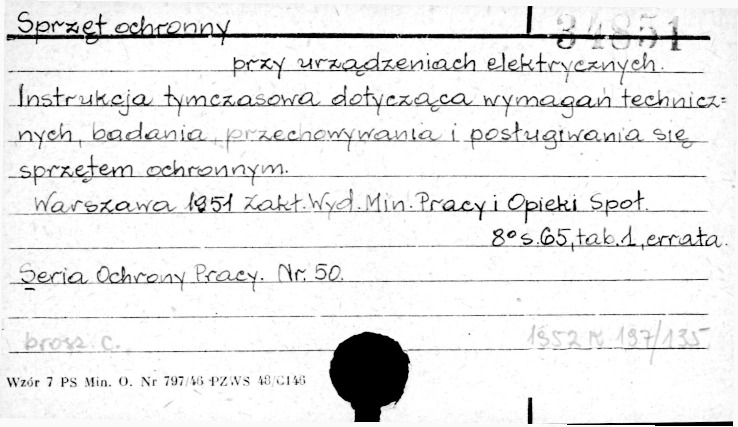 Sprzęt ochronny 34851
przy urządzeniach elektrycznych.
Instrukcja tymczasowa dotycząca wymagań technicz=
nych, badania, przechowywania i posługiwania się
sprzętem ochronnym.
Warszawa 1951 Zakt. Wyd. Min. Pracy i Opieki Społ.
8° s. 65, tab. 1, errata.
Seria Ochrony Pracy. Nr. 50.
brosz. c. 1952 K 197/135
Wzór 7 PS Min. O. Nr 797/46 PZWS 48/C146